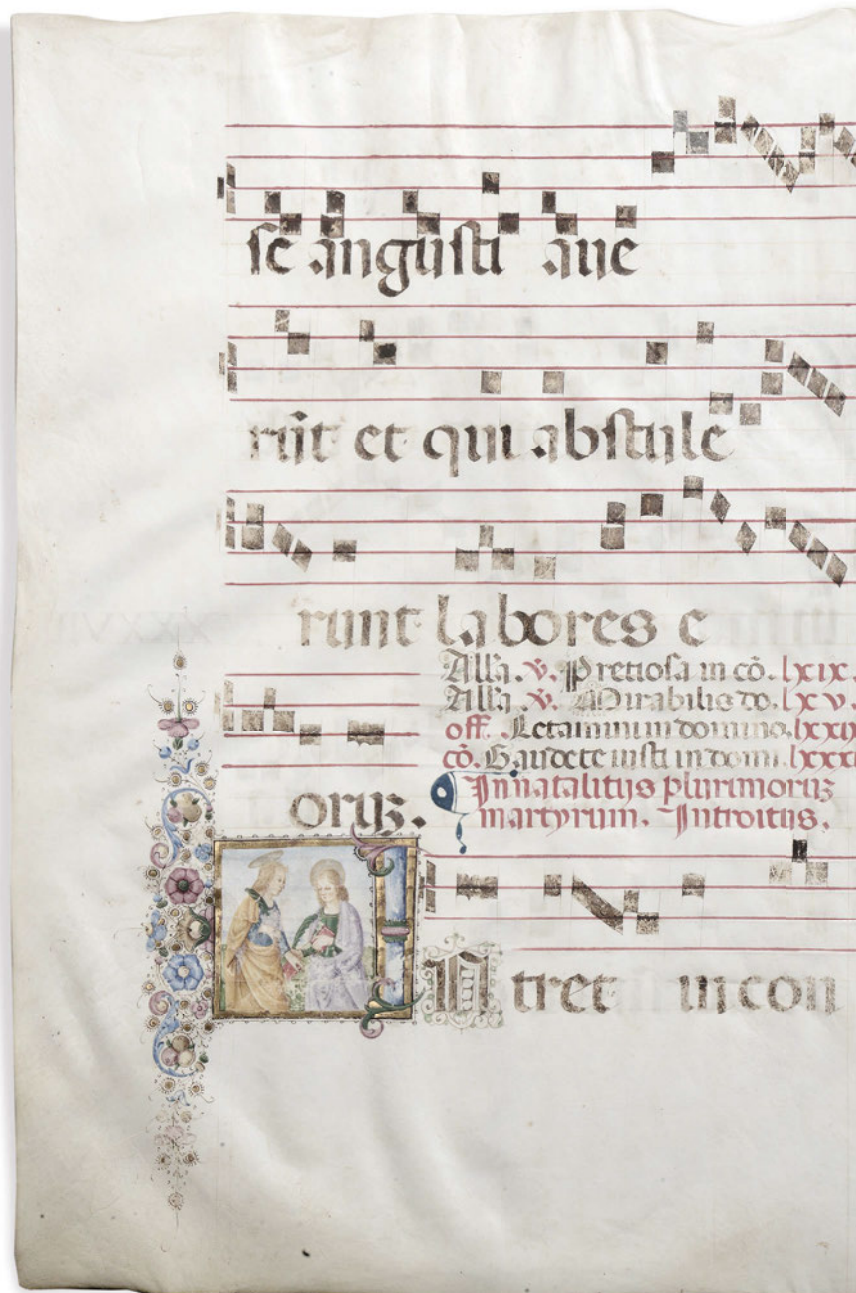 se angusti aue
rūt et qui abstule
runt labores e
Allā. v. Pretiosa in cō. lxix.
Allā. v. Mirabilis do. lxv.
off. Letamini in domino. lxxi
cō. Gaudete iusti in domi. lxxx
oruꝫ.
In natalitijs plurimoruꝫ
martyrum. Introitus.
INtret in con